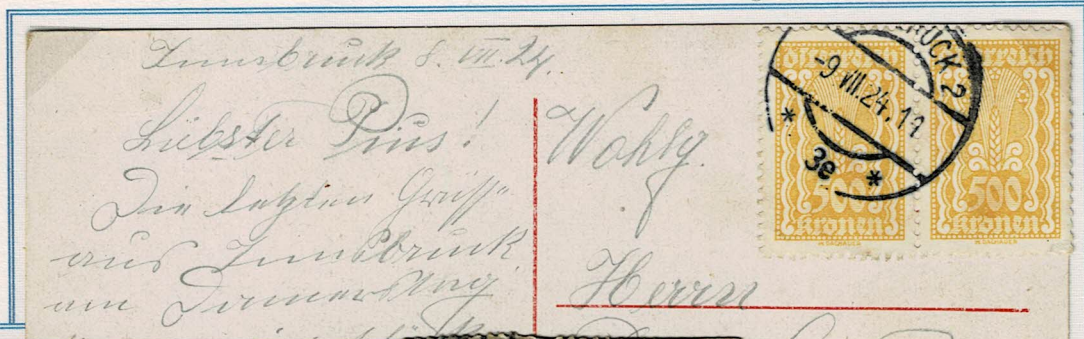 Innsbruck 8. VII. 24.
Liebster Pius!
Die letzten Grüsse
aus Innsbruck
am Donnerstag
Wohlg.
Herrn
BRUCK 2
-9 VIII.24.11
* 3e *
Österreich
500
kronen
Österreich
500
kronen